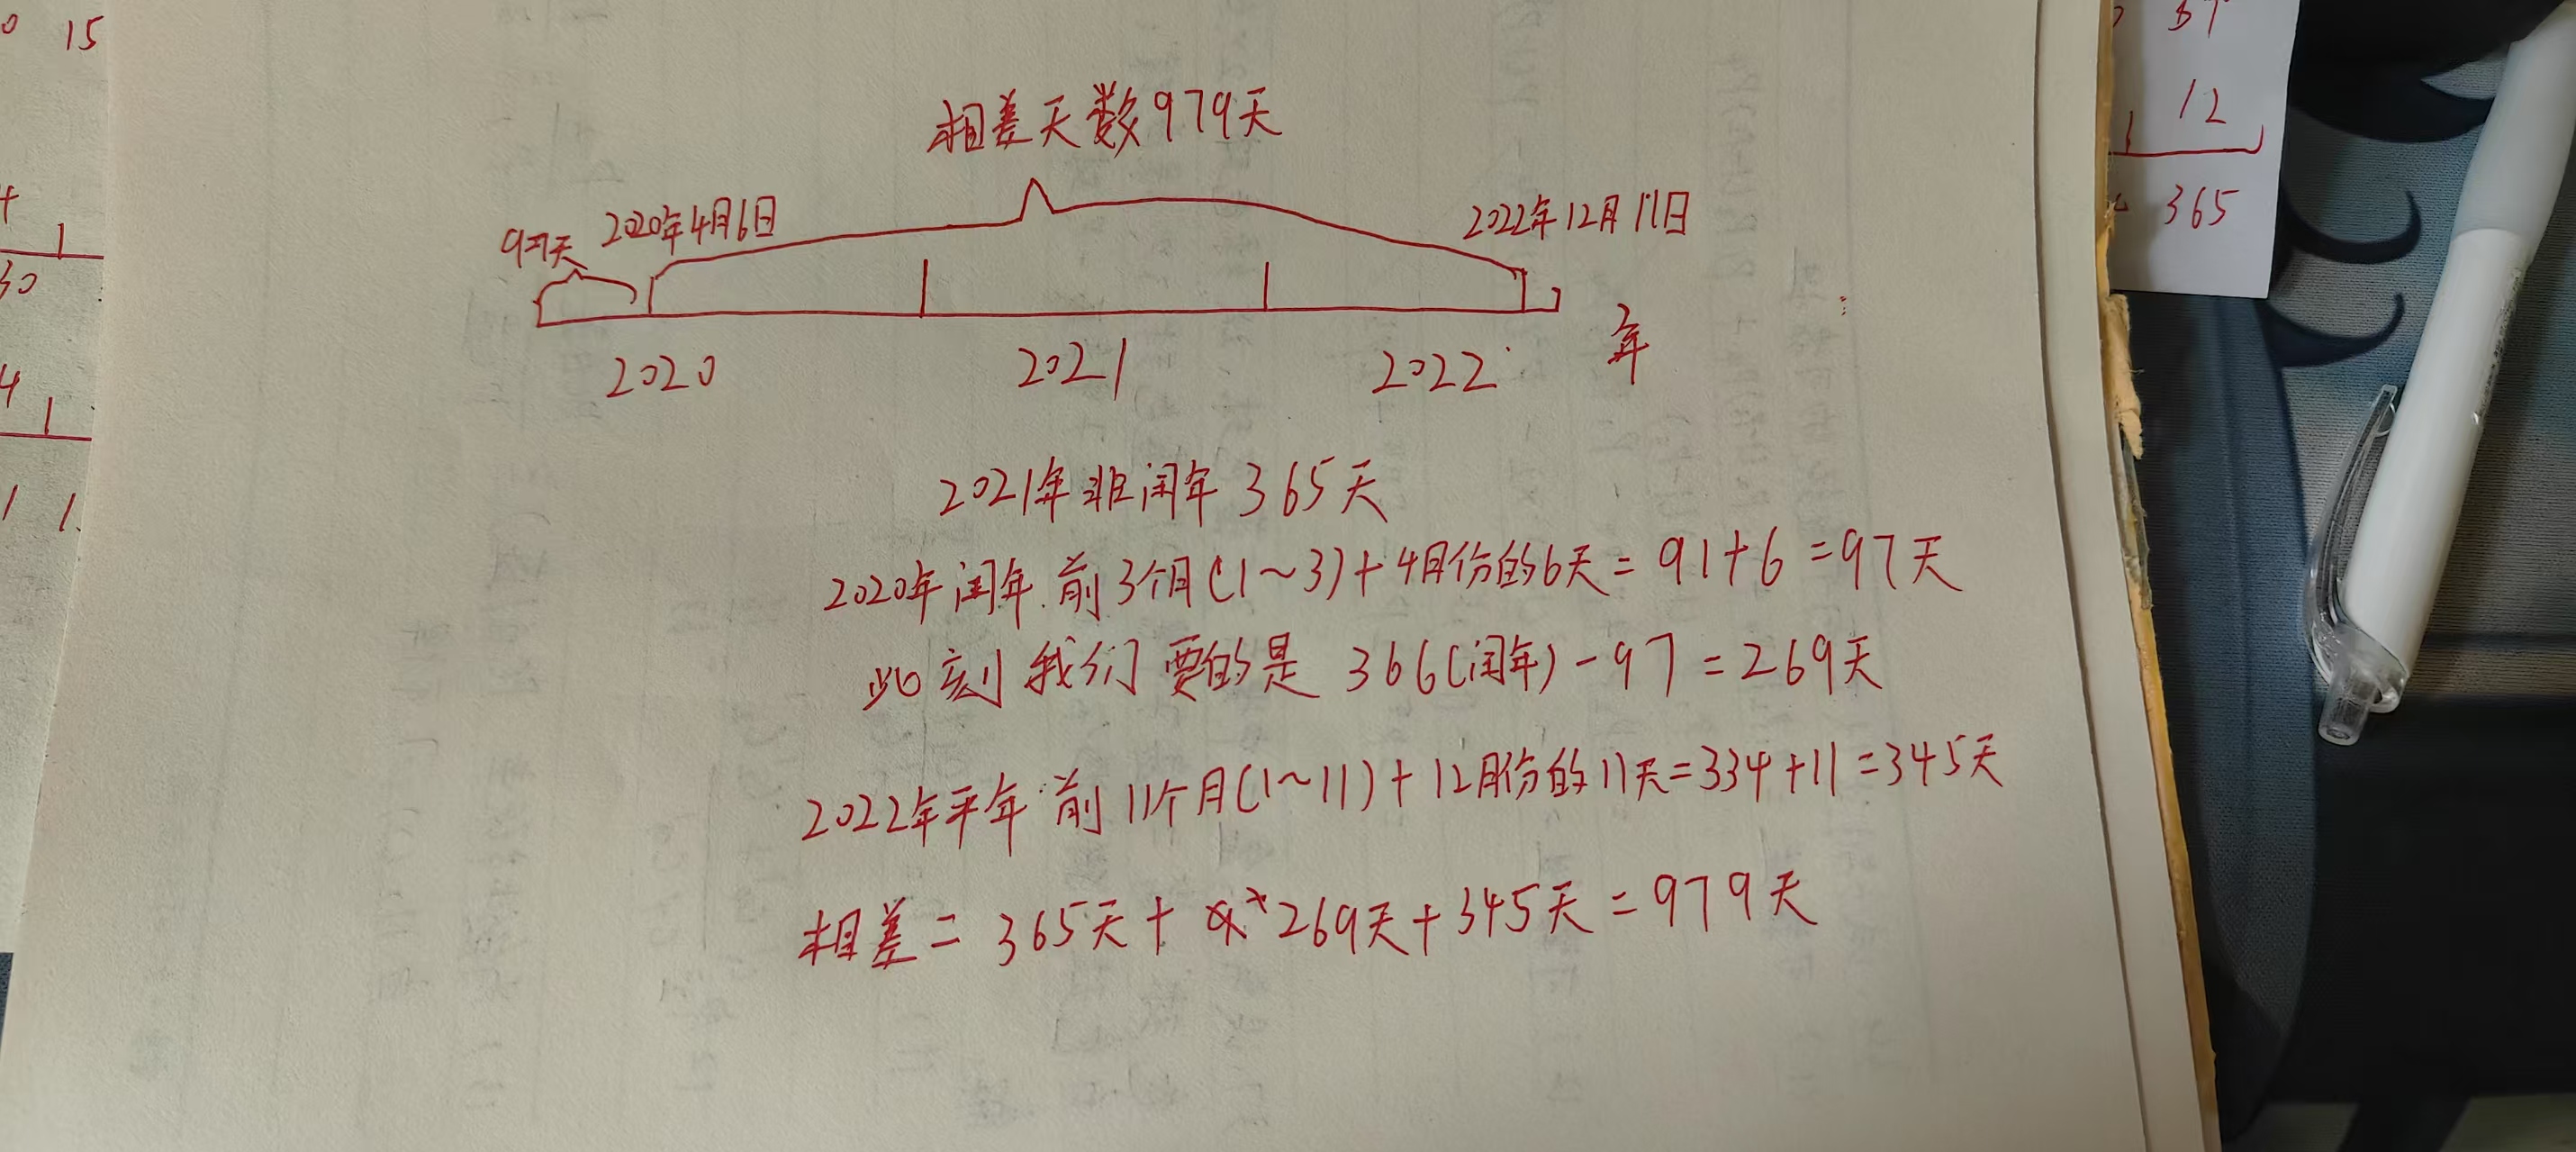 相差天数979天
97天 2020年4月6日 2022年12月11日
2020 2021 2022 年
2021年非闰年 365天
2020年闰年.前3个月(1~3)+4月份的6天=91+6=97天
此刻我们要的是 366(闰年)-97=269天
2022年平年 前11个月(1~11)+12月份的11天=334+11=345天
相差= 365天+ 269天+345天=979天
15
30
12
365